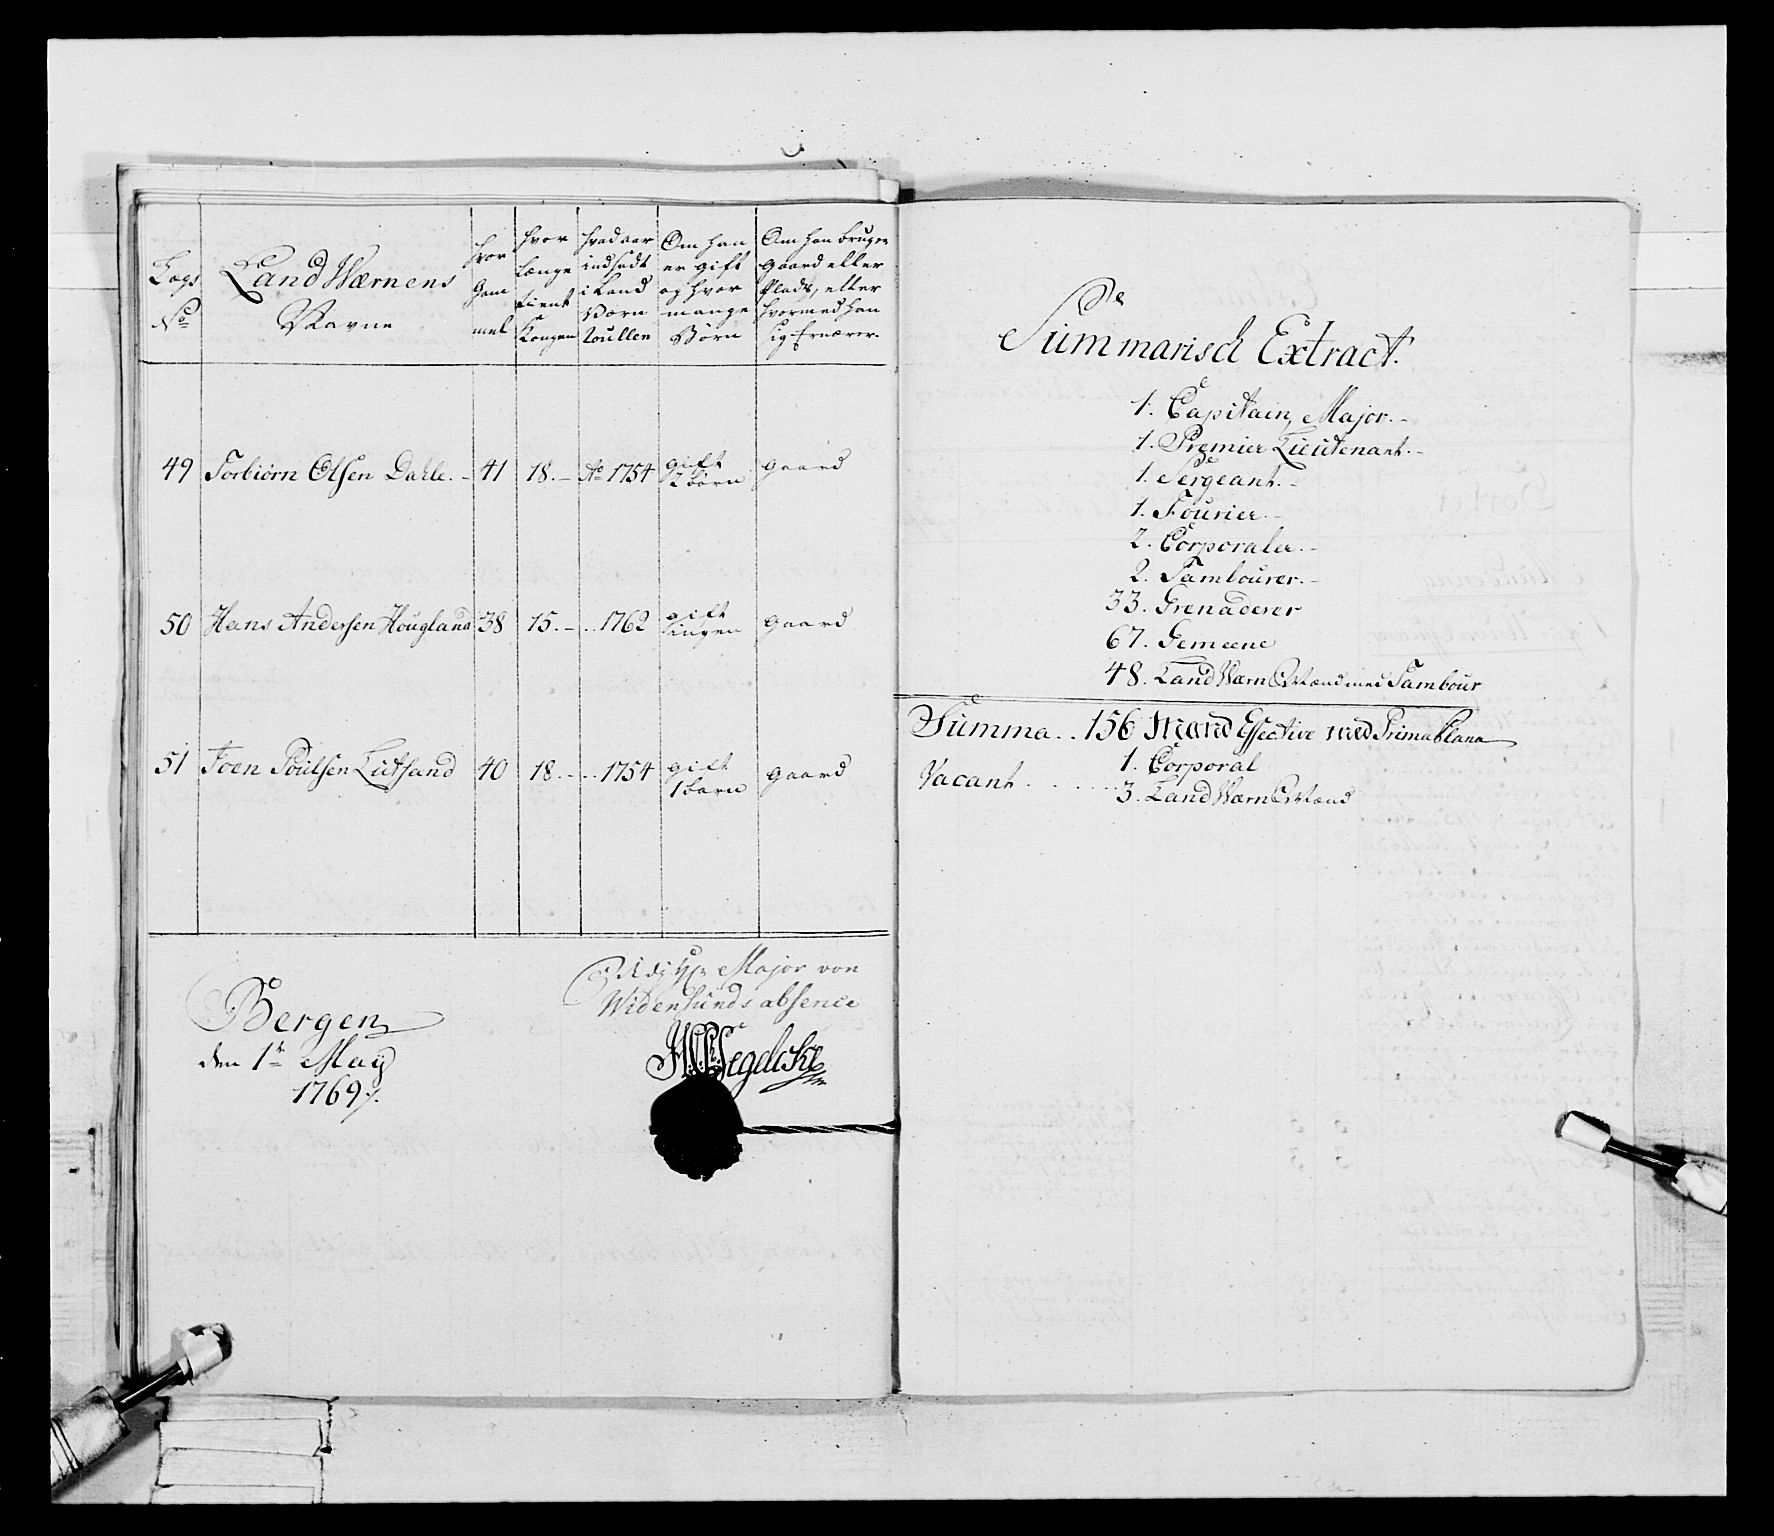 Lægs No
LandWærnens Navne
hvor Gam mel
hvor Længe tient Kongen
hvad aar indsadt i Land Værn Roullen
Om han er gift og hvor mange Børn
Om han bruger gaard eller Plads, eller hvormed han sig Ernærer.
49 Torbiörn Olsen Dahle. 41 18. Ao 1754 gift 2 börn gaard
50 Hans Andersen Hougland 38 15. 1762 gift ingen gaard
51 Joen Poulsen Lutsand 40 18. 1754 gift 1 barn gaard
Bergen
den 1te May
1769
Major von
Widensunds absence
Summarisch Extract.
1. Capitain, Major.
1. Premier Lieutenant.
1. Sergeant.
1. Fourier.
2. Corporaler.
2. Tambourer.
33. Grenaderer
67. Gemeene
48. LandVærn Mænd med Tambour
Summa .. 156 Mand Effective med Prima Plana
1. Corporal
Vacant . . . . . . .
3. LandVærn Mænd